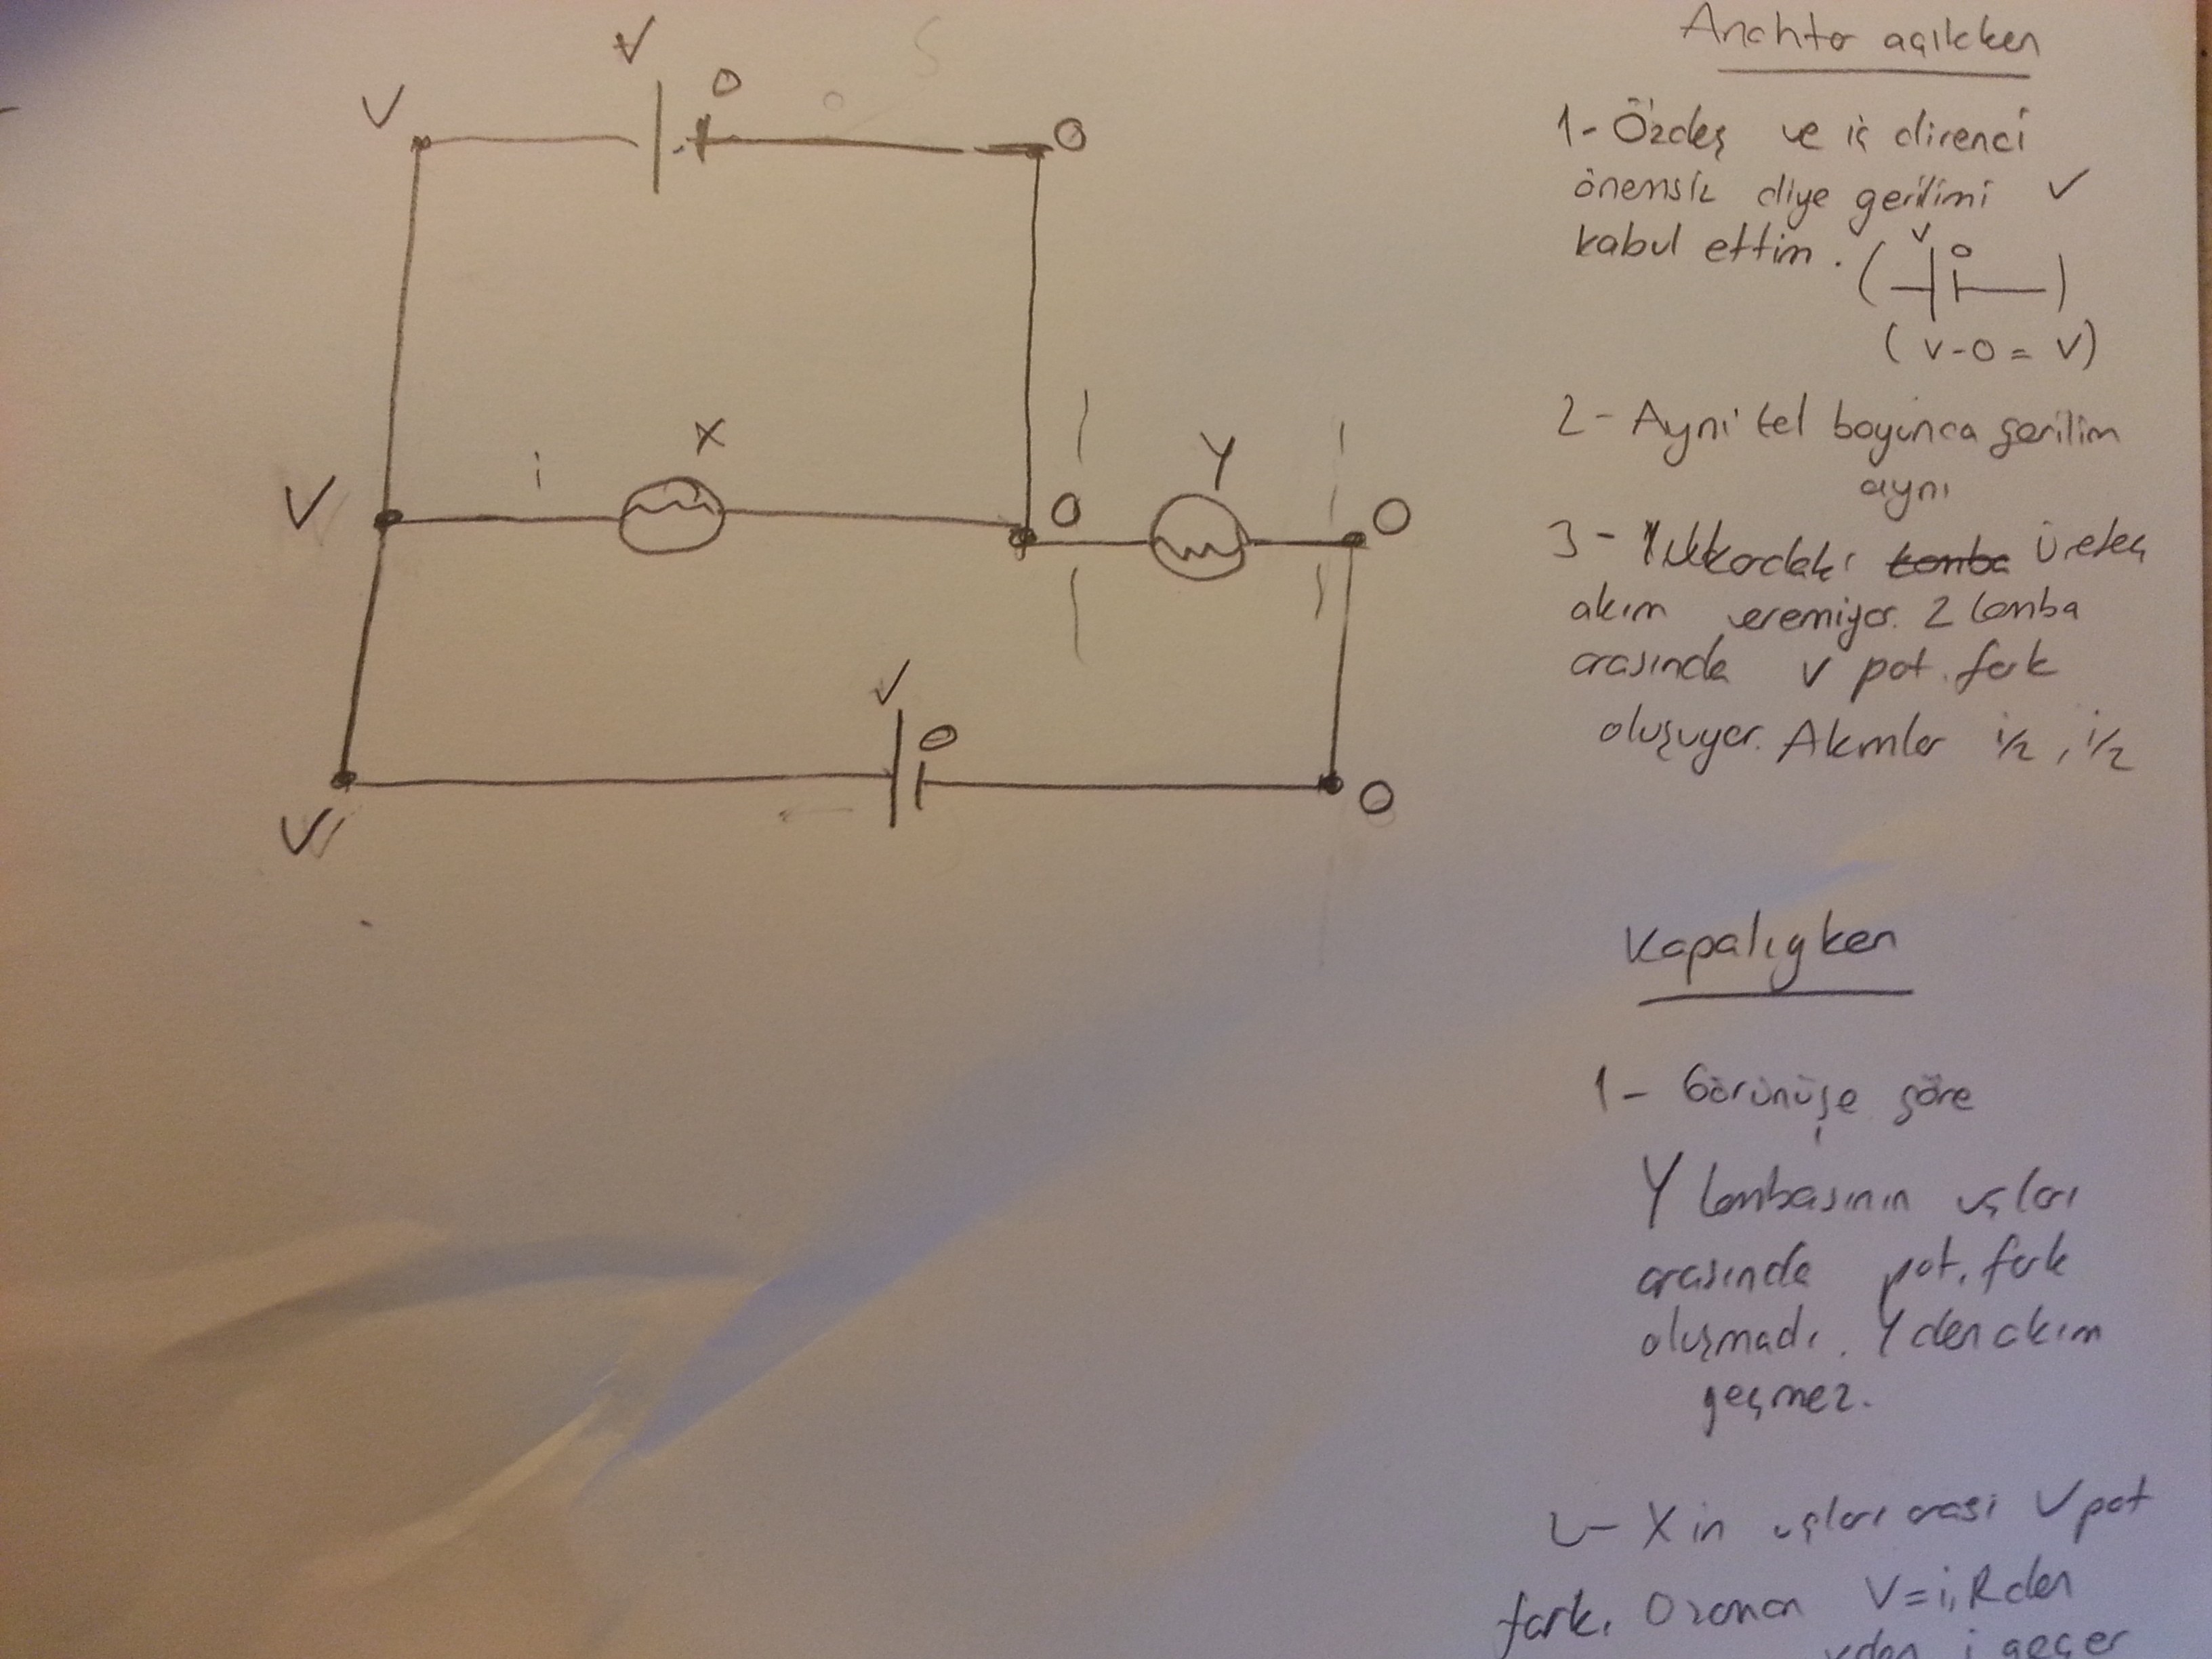 V
0
V
0
V
i
X
0
Y
0
V
0
V
0
Anahtar açıkken
1- Özdeş ve iç direnci
önemsiz diye gerilimi V
kabul ettim. (
V 0
)
(V-0 = V)
2- Ayni tel boyunca gerilim
aynı
3- Yukkardaki Üreteç
akım veremiyor. 2 lamba
arasında V pot. fark
oluşuyor. Akımlar i/2, i/2
Kapalıyken
1- Görünüşe göre
Y lambasının uçları
arasında pot. fark
oluşmadı. Y den akım
geçmez.
2- X in uçları arası V pot
fark. O zaman V=i.R den
i geçer